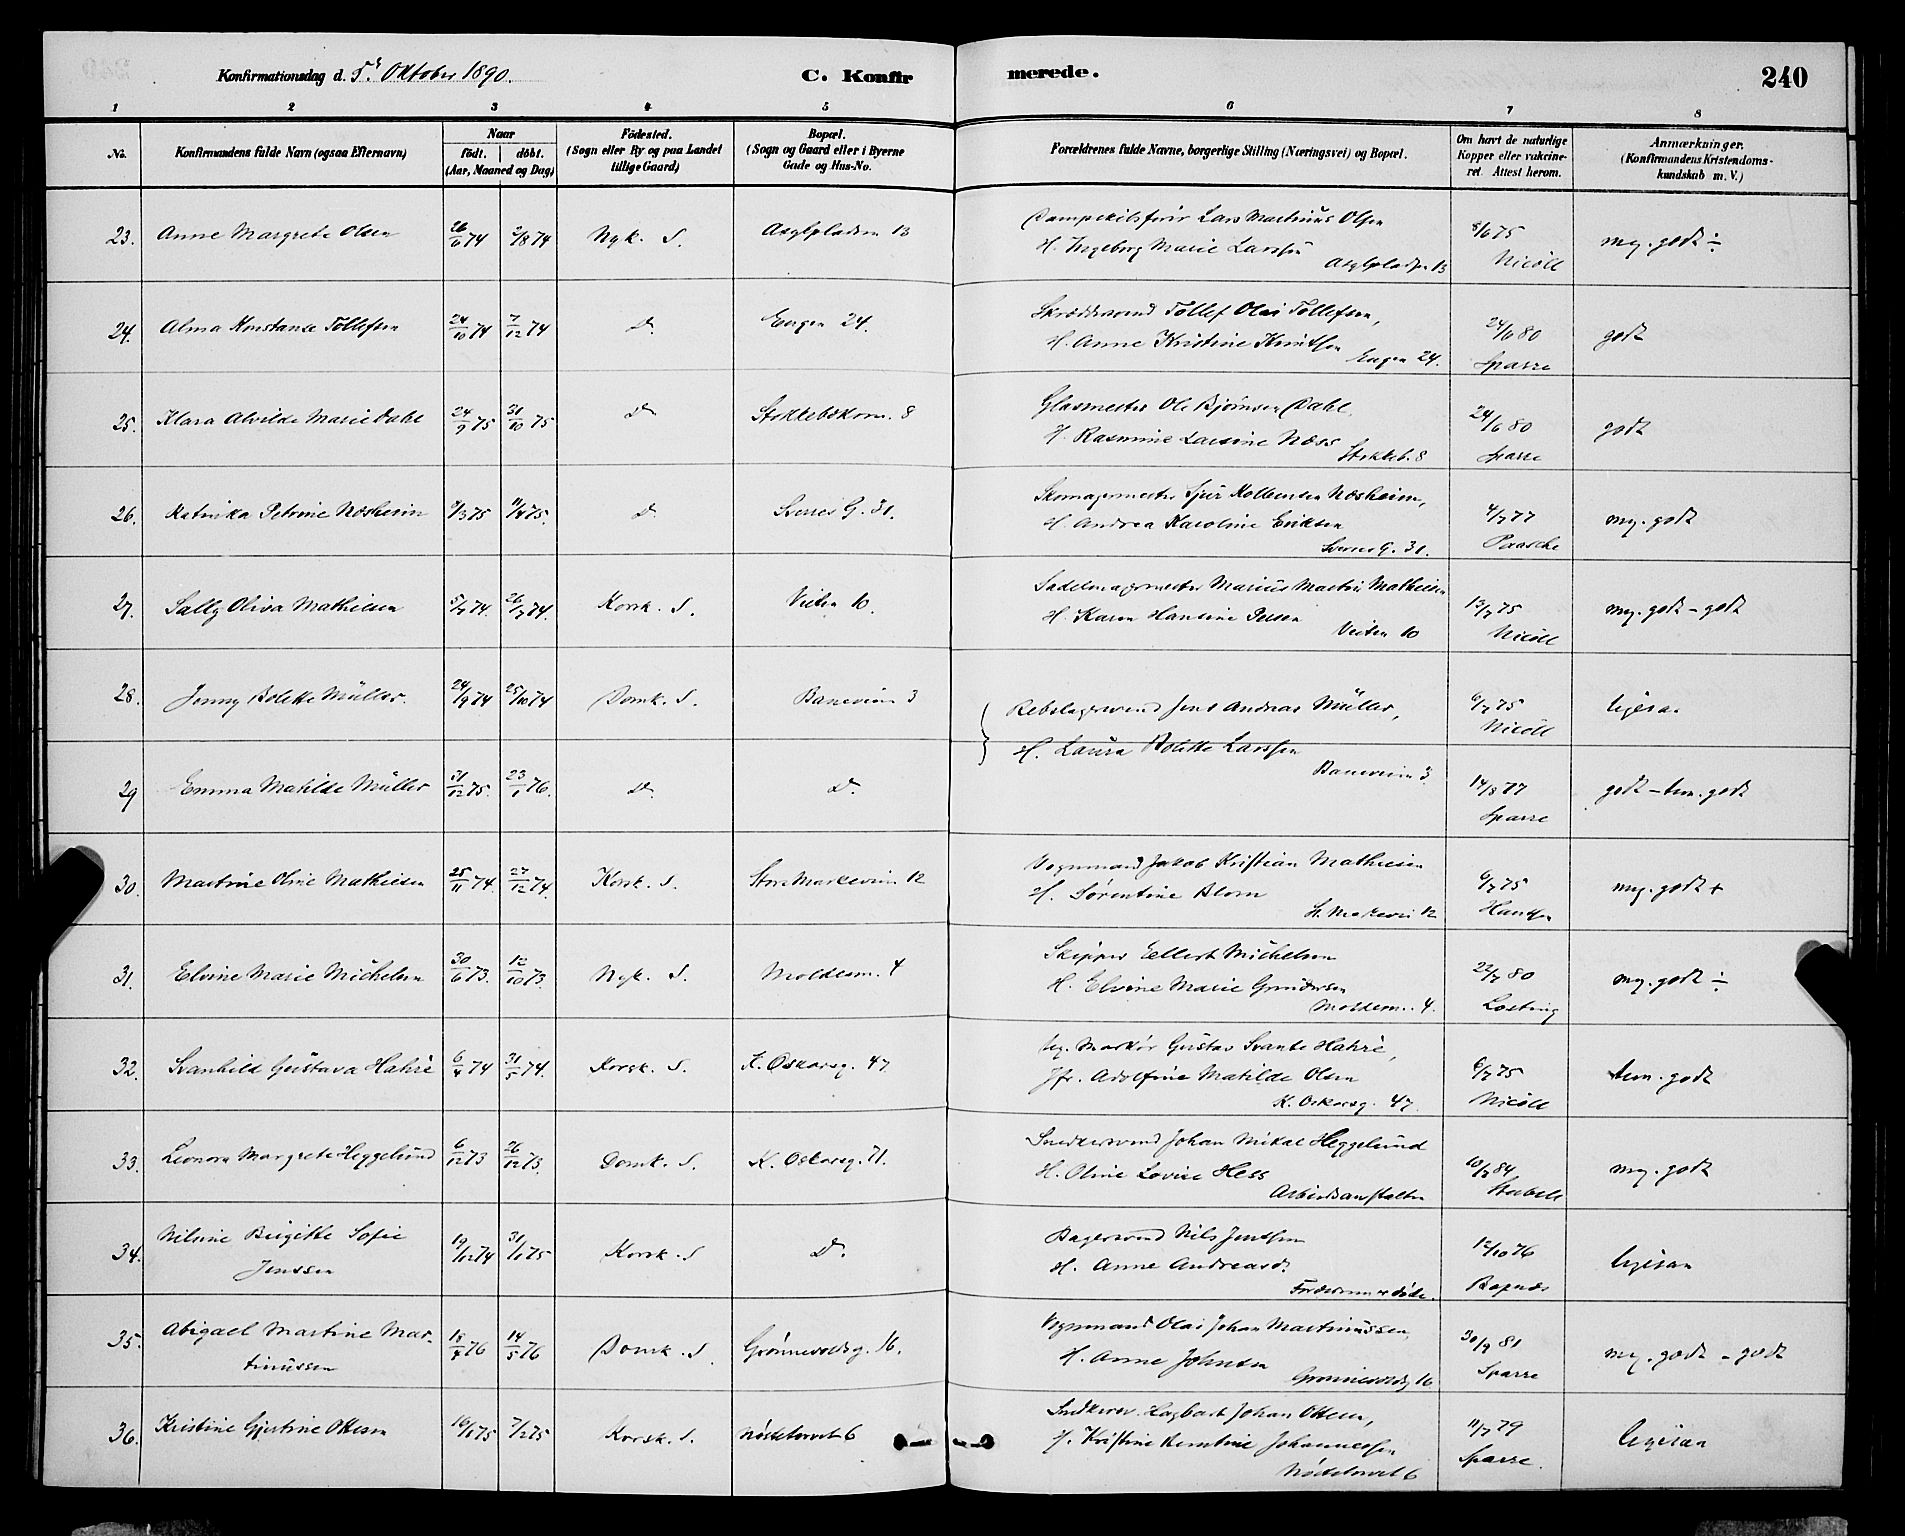 Konfirmationsdag d. 5te Oktober 1890.
C. Konfirmerede.
240
1 2 3 4 5 6 7 8
No.
Konfirmandens fulde Navn (ogsaa Efternavn)
Naar
födt. döbt.
(Aar, Maaned og Dag)
Födested.
(Sogn eller By og paa Landet tillige Gaard)
Bopæl.
(Sogn og Gaard eller i Byerne Gade og Hus-No.
Forældrenes fulde Navne, borgerlige Stilling (Næringsvei) og Bopæl.
Om havt de naturlige Kopper eller vakcineret. Attest herom.
Anmærkninger.
(Konfirmandens Kristendomskundskab m. V.)
23. Anne Margrete Olsen 26/6 74 2/8 74 Nyk. S. Asylpladsen 13
Lars Martinus Olsen
H. Ingeborg Marie Larsen
Asylpladsen 13
8/6 75 Nicoll
my. godt ÷
24. Alma Konstanse Tollefsen 24/10 74 7/12 74 D. Engen 24.
Skræddersvend Tollef Olai Tollefsen,
H. Anne Kristine Knutsen
Engen 24.
24/6 80 Sparre
godt
25. Klara Alvilde Marie Dahl 24/9 75 31/10 75 D. 8
Glasmester Ole Bjørnsen Dahl,
H. Rasmine Larsine Næss
Stokkeb. 8
24/6 80 Sparre
godt
26. Katinka Petrine Næsheim 9/3 75 11/4 75. D. Sverres G. 31.
Skomagermester Sjur Kolbensen Næsheim,
H. Andrea Karoline Eriksen
Sverres G. 31.
4/7 77 Paasche
my. godt
27. Sally Oliva Mathiesen 5/7 74. 26/7 74. Korsk. S. Veiten 10.
Sadelmagermester Marius Martin Mathiesen
H. Karen Hansine
Veiten 10
13/7 75 Nicoll
my. godt - godt
28. Jenny Bolette Müller. 24/9 74 25/10 74 Domk. S. Baneveien 3
Rebslagersvend Jens Andreas Müller,
H. Laura Bolette Larssen
Baneveien 3
6/7 75 Nicoll
ligesaa
29 Emma Matilde Müller 31/12 75. 23/1 76. D. D.
14/8 77 Sparre
godt - tem. godt
30. Martine Oline Mathiesen 25/11 74. 27/12 74. Korsk. S. Store Markevei 12
Vognmand Jakob Kristian Mathiesen
H. Sørentine Blom
St. Markevei 12
6/7 75
my. godt +
31. Elvine Marie Michelsen 30/6 73. 12/10 73. Nyk. S. 4
Skipper Eellert Michelsen
H. Elvine Marie Gundersen
4.
22/7 80 Losting
my. godt ÷
32. Svanhild Gustava Hahré 6/4 74 31/5 74. Korsk. S. K. Oskarsg. 47
Ug. Markør Gustav Svante Hahré,
Jfr. Adolfine Matilde Olsen
K. Oskarsg. 47
6/7 75 Nicoll
tem. godt
33. Leonora Margrete Heggelund 6/12 73 26/12 73. Domk. S. K. Oskarsg. 71.
Snedkersvend Johan Mikal Heggelund
H. Oline Lovise Hess
Arbeidsanstalten
10/7 84
my. godt
34. Nilsine Birgitte Sofie
Jenssen
19/12 74 31/1 75 Korsk. S D.
Bagersvend Nils Jentsen
H. Anne Andreasd.
Forældrene er døde.
12/10 76
ligesaa
35. Abigael Martine Mar-
tinussen
18/4 76 14/5 76 Domk. S. Grønnevoldsg. 16.
Vognmand Olai Johan Martinussen,
H. Anne Johnsen
Grønnevoldsg 16
30/9 81 Sparre
my. godt - godt
36. Kristine Gjertine Ottesen 16/1 75 7/2 75 Korsk. S. Nøstetorvet 6
Snedkersv. Hagbart Johan Ottesen,
H. Kristine Johannessen
Nøstetorvet 6
11/7 79 Sparre.
ligesaa